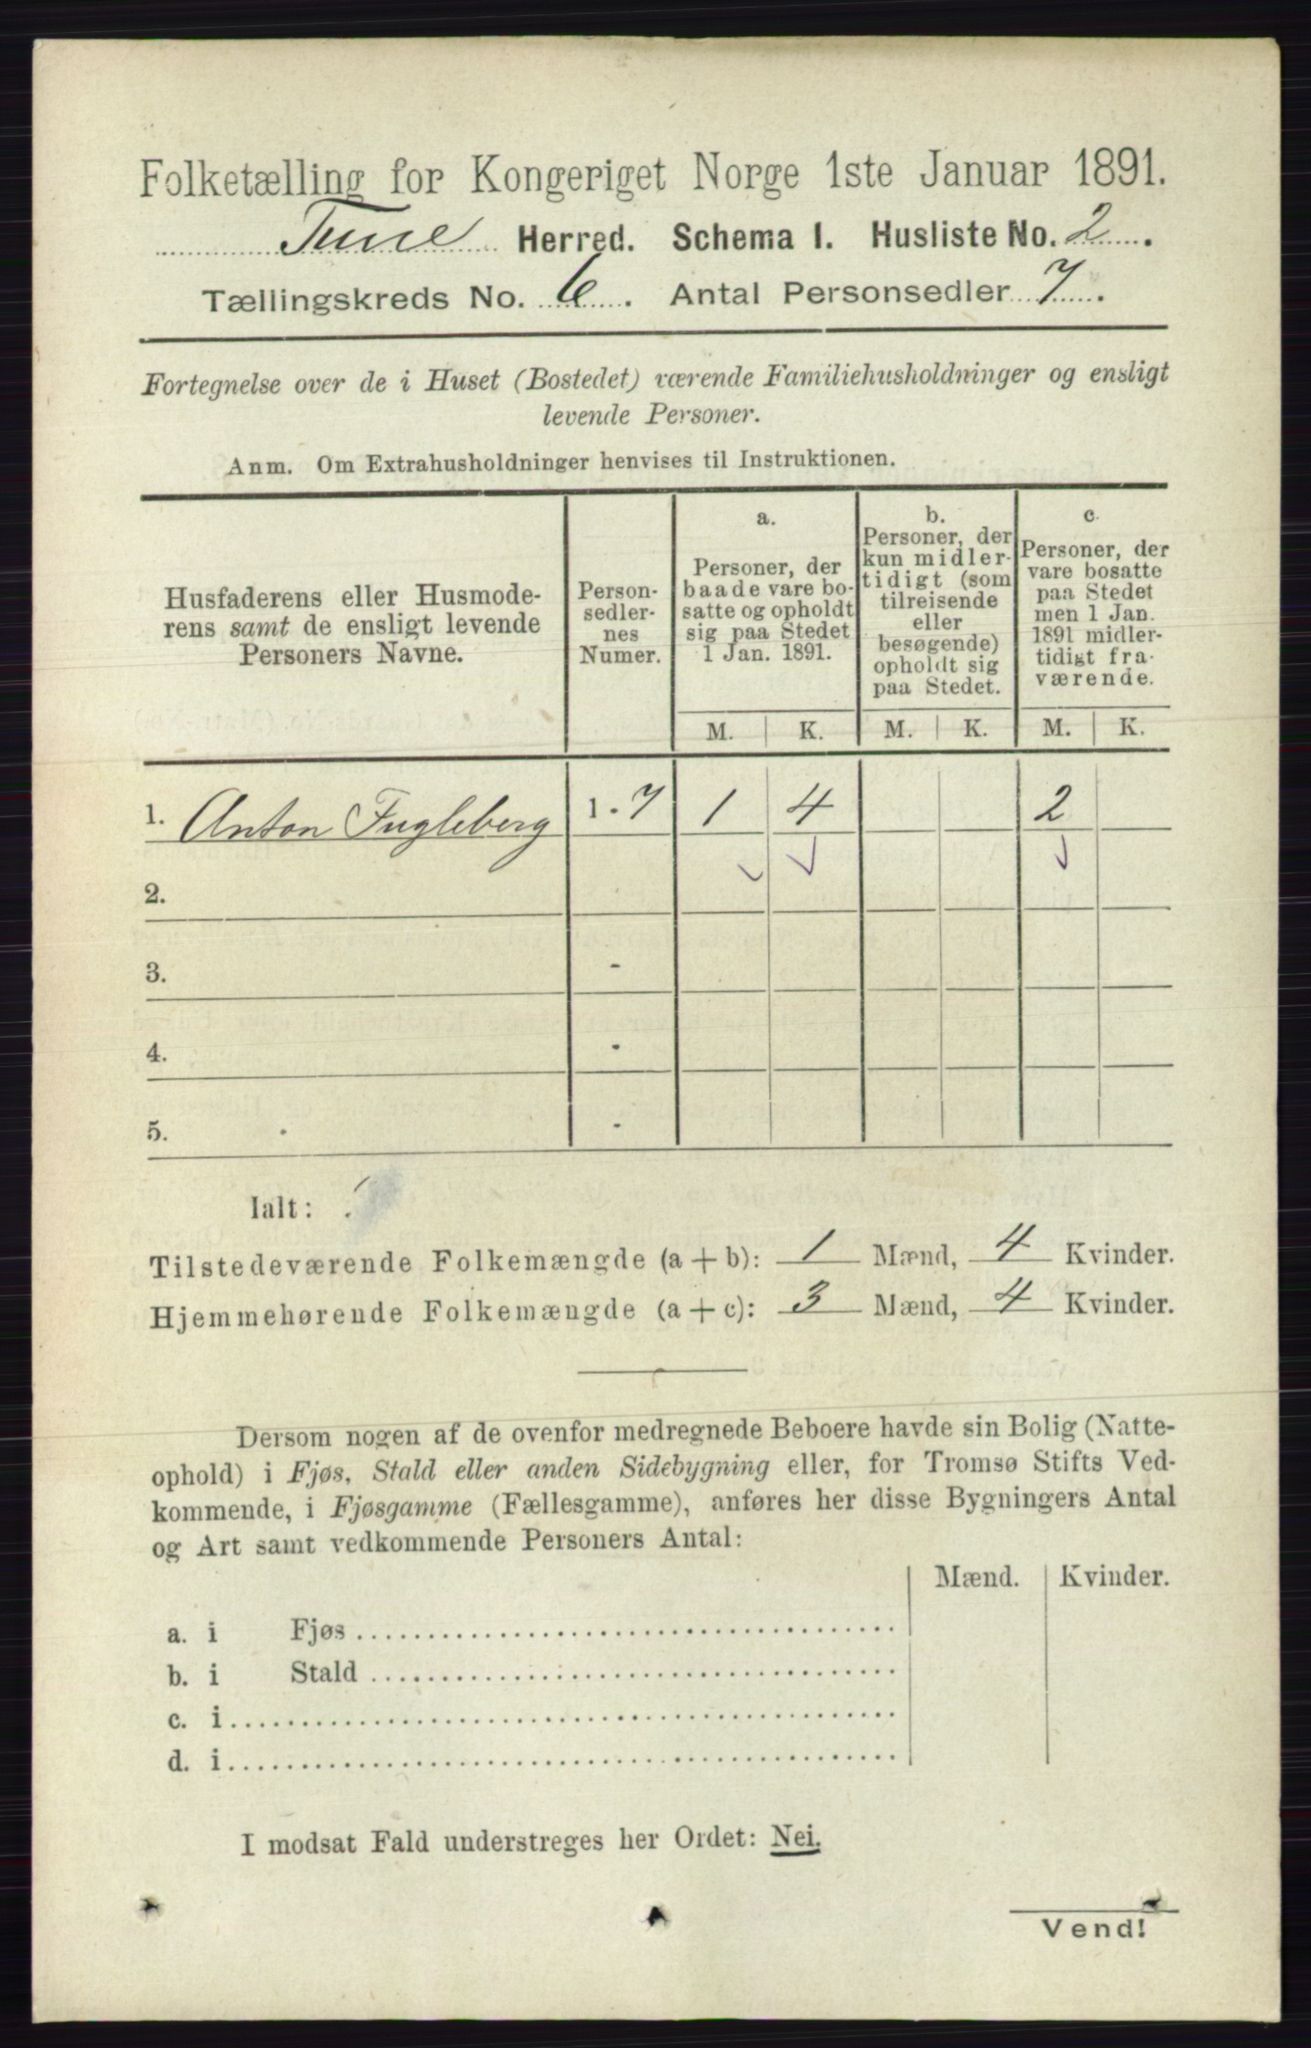 Folketælling for Kongeriget Norge 1ste Januar 1891.
Tune Herred. Schema I. Husliste No. 2.
Tællingskreds No. 6. Antal Personsedler 7.
Fortegnelse over de i Huset (Bostedet) værende Familiehusholdninger og ensligt
levende Personer.
Anm. Om Extrahusholdninger henvises til Instruktionen.
Husfaderens eller Husmode-
rens samt de ensligt levende
Personers Navne.
Person-
sedler-
nes
Numer.
a.
Personer, der
baade vare bo-
satte og opholdt
sig paa Stedet
1 Jan. 1891.
b.
Personer, der
kun midler-
tidigt (som
tilreisende
eller
besøgende)
opholdt sig
paa Stedet.
c.
Personer, der
vare bosatte
paa Stedet
men 1 Jan.
1891 midler-
tidigt fra-
værende.
M. K. M. K. M. K.
1. Anton Fugleberg 1 - 7 1 4 2
2.
3. -
4. -
5. -
Ialt:
Tilstedeværende Folkemængde (a + b): 1 Mænd, 4 Kvinder.
Hjemmehørende Folkemængde (a + c): 3 Mænd, 4 Kvinder.
Dersom nogen af de ovenfor medregnede Beboere havde sin Bolig (Natte-
ophold) i Fjøs, Stald eller anden Sidebygning eller, for Tromsø Stifts Ved-
kommende, i Fjøsgamme (Fællesgamme), anføres her disse Bygningers Antal
og Art samt vedkommende Personers Antal:
Mænd. Kvinder.
a. i Fjøs
b. i Stald
c. i
d. i
I modsat Fald understreges her Ordet: Nei.
Vend!